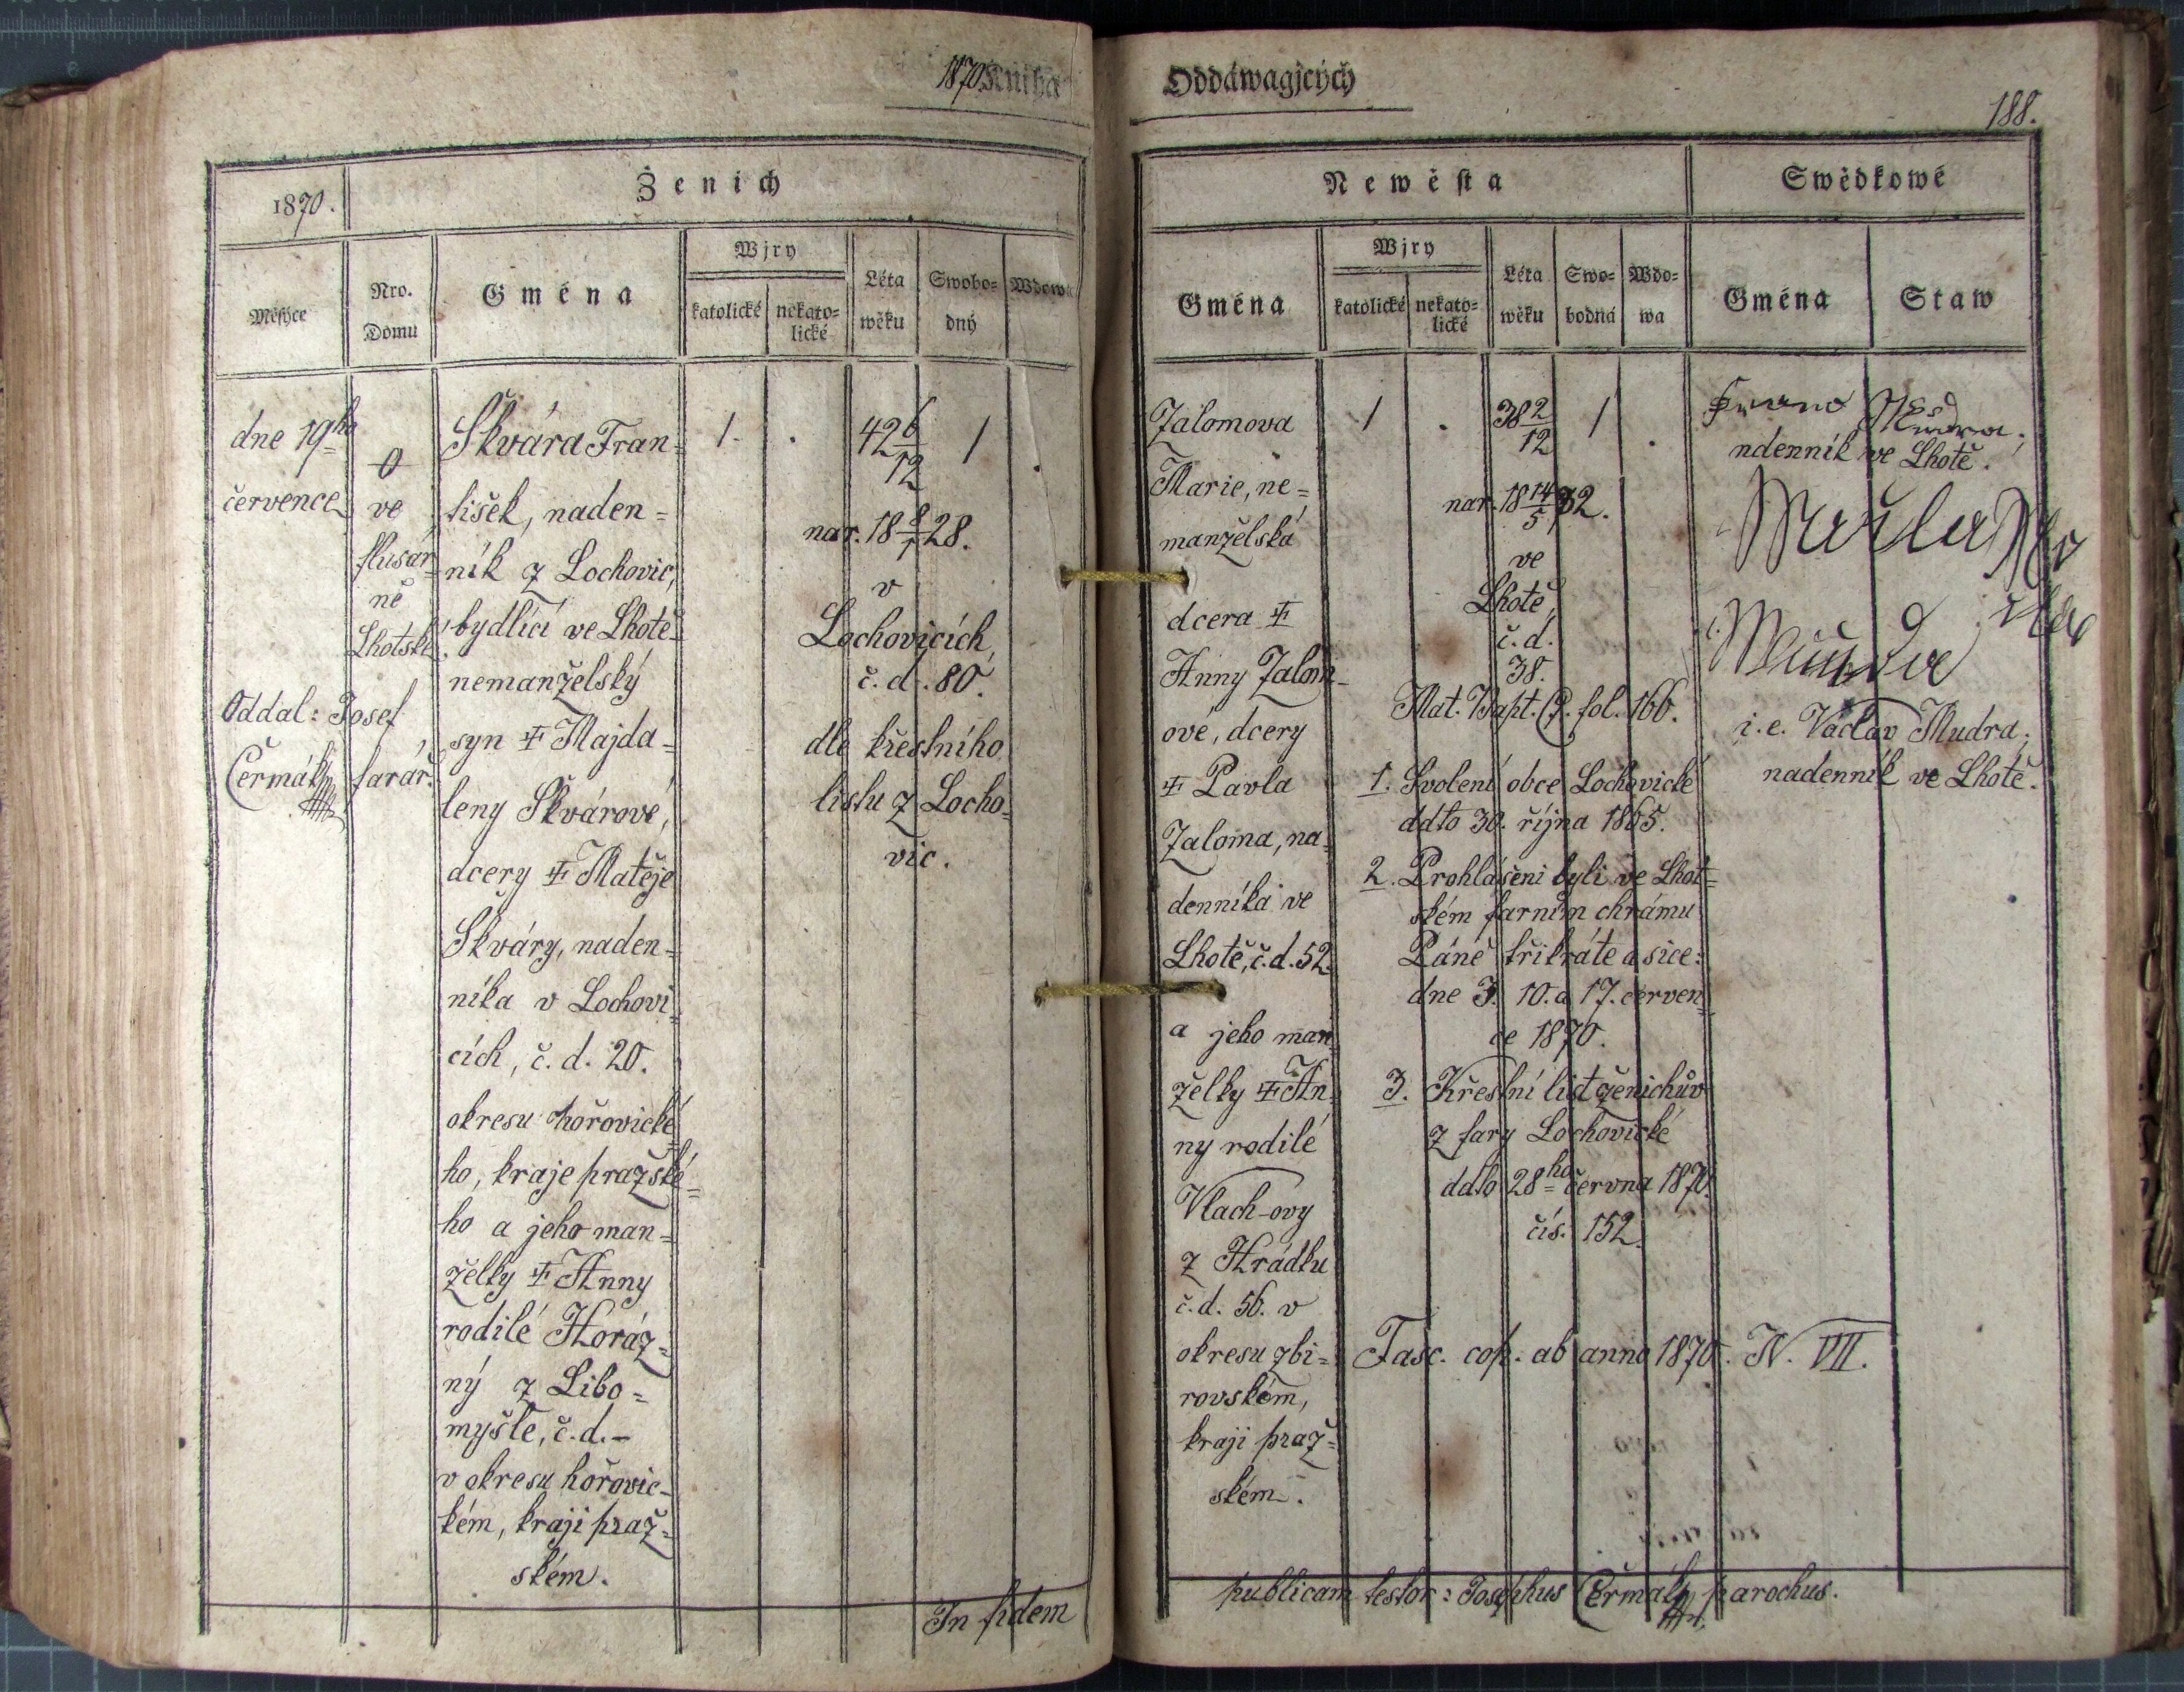 1870. Kniha
Oddáwagjcých
188.
1870.
Ženich
Měsýce
Nro. Domu
Gména
Wjry
katolické
nekato-
lické
Léta
wěku
Swobo-
dný
Wdowec
dne 19ho
července
0
ve
flusár-
ně
Lhotské.
Oddal: Josef
Čermák, farář.
Škvára Fran-
tišek, naden-
ník z Lochovic,
bydlící ve Lhotě
nemanželský
syn ☨ Majda-
leny Škvárové,
dcery ☨ Matěje
Škváry, naden-
níka v Lochovi-
cích, č. d. 20.
okresu hořovické-
ho, kraje pražské-
ho a jeho man-
želky ☨ Anny
rodilé Horáz-
ný z Libo-
myšle, č. d. –
v okresu hořovic-
kém, kraji praž-
ském.
1.
.
42 6/12
1
.
nar. 18 8/1 28.
v
Lochovicích,
č. d. 80.
dle křestního
listu z Locho-
vic.
In fidem
Newěsta
Gména
Wjry
katolické
nekato-
lické
Léta
wěku
Swo-
bodná
Wdo-
wa
Swědkowé
Gména
Staw
Zalomova
Marie, ne-
manželská
dcera ☨
Anny Zalom-
ové, dcery
☨ Pavla
Zaloma, na-
denníka ve
Lhotě, č. d. 52.
a jeho man-
želky ☨ An-
ny rodilé
Vlach-ovy
z Hrádku
č. d. 56. v
okresu zbi-
rovském,
kraji praž-
ském.
1
.
38 2/12
1
.
nar. 18 14/5 32.
ve
Lhotě,
č. d.
38.
Mat. Bapt. fol. 166.
1. Svolení obce Lochovické
ddto 30. října 1865.
2. Prohlášeni byli ve Lhot-
ském farním chrámu
Páně třikráte a sice:
dne 3. 10. a 17. červen-
ce 1870.
3. Křestní list ženichův
z fary Lochovické
ddto 28ho června 1870.
čís. 152.
Fasc. cop. ab anno 1870. N. VII.
ndenník ve Lhotě.
i. e. Václav Mudra,
nadenník ve Lhotě.
publicam testor: Josephus Čermák, parochus.